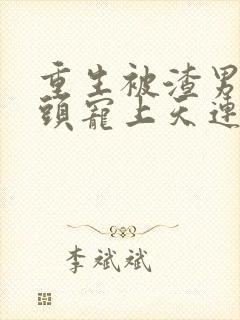 重生被渣男
頭寵上天連
李斌斌